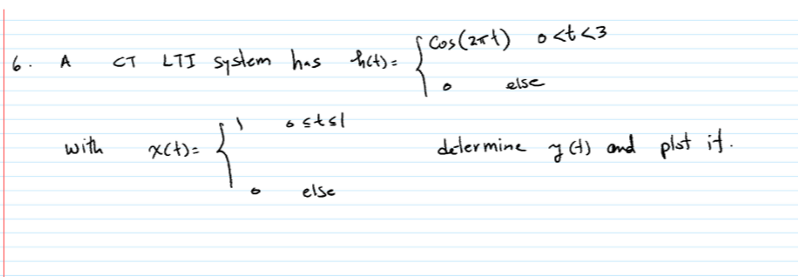 6. A CT LTI system has h(t)= { cos(2πt) 0<t<3
0 else
with x(t)= { 1 0≤t≤1 determine y(t) and plot it.
0 else